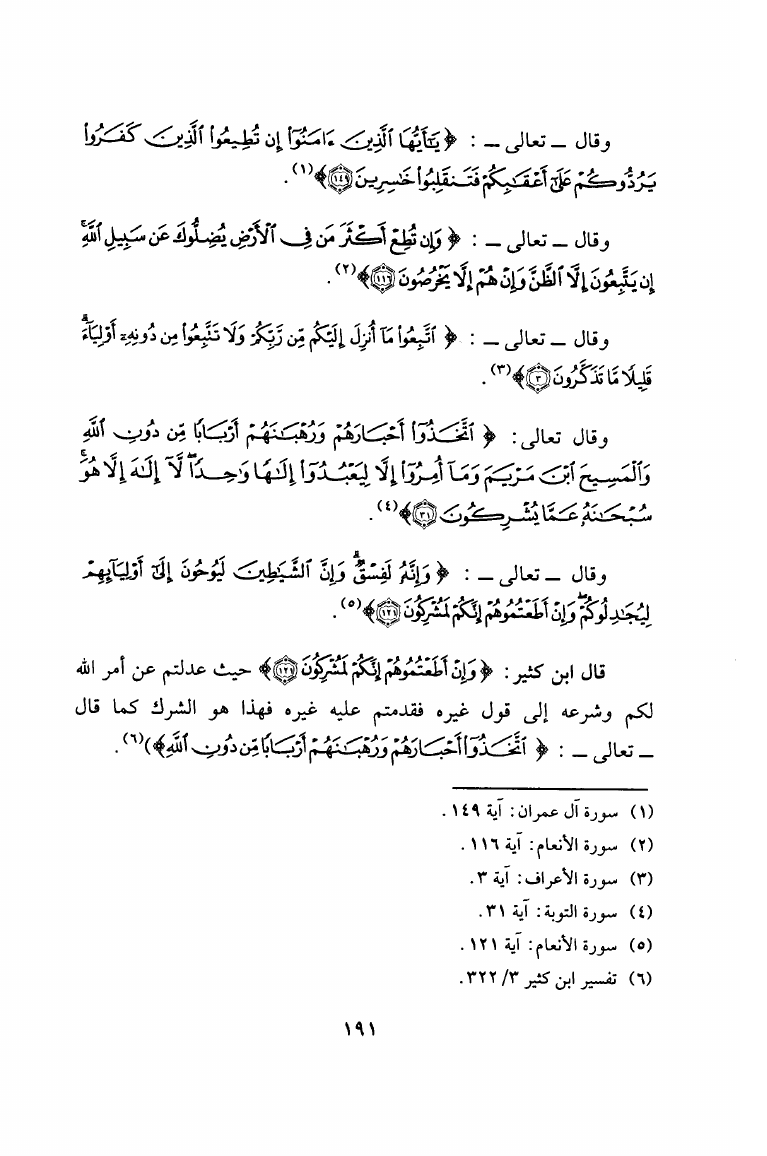 وقال ـ تعالى ـ : ﴿ يَٰٓأَيُّهَا ٱلَّذِينَ ءَامَنُوٓا۟ إِن تُطِيعُوا۟ ٱلَّذِينَ كَفَرُوا۟
يَرُدُّوكُمْ عَلَىٰٓ أَعْقَٰبِكُمْ فَتَنقَلِبُوا۟ خَٰسِرِينَ ﴿١٤٩﴾ ﴾(١) .
وقال ـ تعالى ـ : ﴿ وَإِن تُطِعْ أَكْثَرَ مَن فِى ٱلْأَرْضِ يُضِلُّوكَ عَن سَبِيلِ ٱللَّهِ ۚ
إِن يَتَّبِعُونَ إِلَّا ٱلظَّنَّ وَإِنْ هُمْ إِلَّا يَخْرُصُونَ ﴿١١٦﴾ ﴾(٢) .
وقال ـ تعالى ـ : ﴿ ٱتَّبِعُوا۟ مَآ أُنزِلَ إِلَيْكُم مِّن رَّبِّكُمْ وَلَا تَتَّبِعُوا۟ مِن دُونِهِۦٓ أَوْلِيَآءَ ۗ
قَلِيلًا مَّا تَذَكَّرُونَ ﴿٣﴾ ﴾(٣) .
وقال تعالى : ﴿ ٱتَّخَذُوٓا۟ أَحْبَارَهُمْ وَرُهْبَٰنَهُمْ أَرْبَابًا مِّن دُونِ ٱللَّهِ
وَٱلْمَسِيحَ ٱبْنَ مَرْيَمَ وَمَآ أُمِرُوٓا۟ إِلَّا لِيَعْبُدُوٓا۟ إِلَٰهًا وَٰحِدًا ۖ لَّآ إِلَٰهَ إِلَّا هُوَ ۚ
سُبْحَٰنَهُۥ عَمَّا يُشْرِكُونَ ﴿٣١﴾ ﴾(٤) .
وقال ـ تعالى ـ : ﴿ وَإِنَّهُۥ لَفِسْقٌ ۗ وَإِنَّ ٱلشَّيَٰطِينَ لَيُوحُونَ إِلَىٰٓ أَوْلِيَآئِهِمْ
لِيُجَٰدِلُوكُمْ ۖ وَإِنْ أَطَعْتُمُوهُمْ إِنَّكُمْ لَمُشْرِكُونَ ﴿١٢١﴾ ﴾(٥) .
قال ابن كثير : ﴿ وَإِنْ أَطَعْتُمُوهُمْ إِنَّكُمْ لَمُشْرِكُونَ ﴿١٢١﴾ ﴾ حيث عدلتم عن أمر الله
لكم وشرعه إلى قول غيره فقدمتم عليه غيره فهذا هو الشرك كما قال
ـ تعالى ـ : ﴿ ٱتَّخَذُوٓا۟ أَحْبَارَهُمْ وَرُهْبَٰنَهُمْ أَرْبَابًا مِّن دُونِ ٱللَّهِ ﴾)(٦) .
(١) سورة آل عمران : آية ١٤٩ .
(٢) سورة الأنعام : آية ١١٦ .
(٣) سورة الأعراف : آية ٣ .
(٤) سورة التوبة : آية ٣١ .
(٥) سورة الأنعام : آية ١٢١ .
(٦) تفسير ابن كثير ٣/ ٣٢٢ .
١٩١